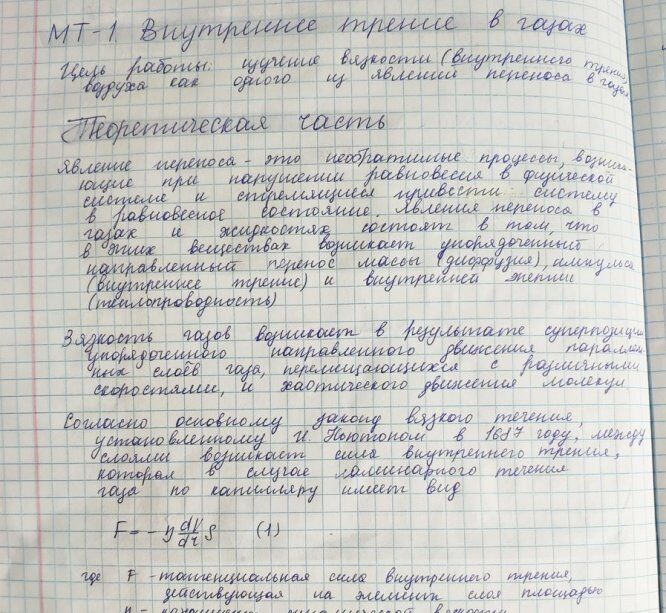 МТ-1 Внутреннее трение в газах
Цель работы: изучение вязкости (внутреннего трения)
воздуха как одного из явлений переноса в газах
Теоретическая часть
Явление переноса - это необратимые процессы, возника-
ющие при нарушении равновесия в физической
системе и стремящиеся привести систему
в равновесное состояние. Явления переноса в
газах и жидкостях состоят в том, что
в этих веществах возникает упорядоченный
направленный перенос массы (диффузия), импульса
(внутреннее трение) и внутренней энергии
(теплопроводность)
Вязкость газов возникает в результате суперпозиции
упорядоченного направленного движения параллель-
ных слоёв газа, перемещающихся с различными
скоростями, и хаотического движения молекул
Согласно основному закону вязкого течения,
установленному И. Ньютоном в 1687 году, между
слоями возникает сила внутреннего трения,
которая в случае ламинарного течения
газа по капилляру имеет вид
F = - η dV/dr S (1)
где F - тангенциальная сила внутреннего трения,
действующая на элемент слоя площадью